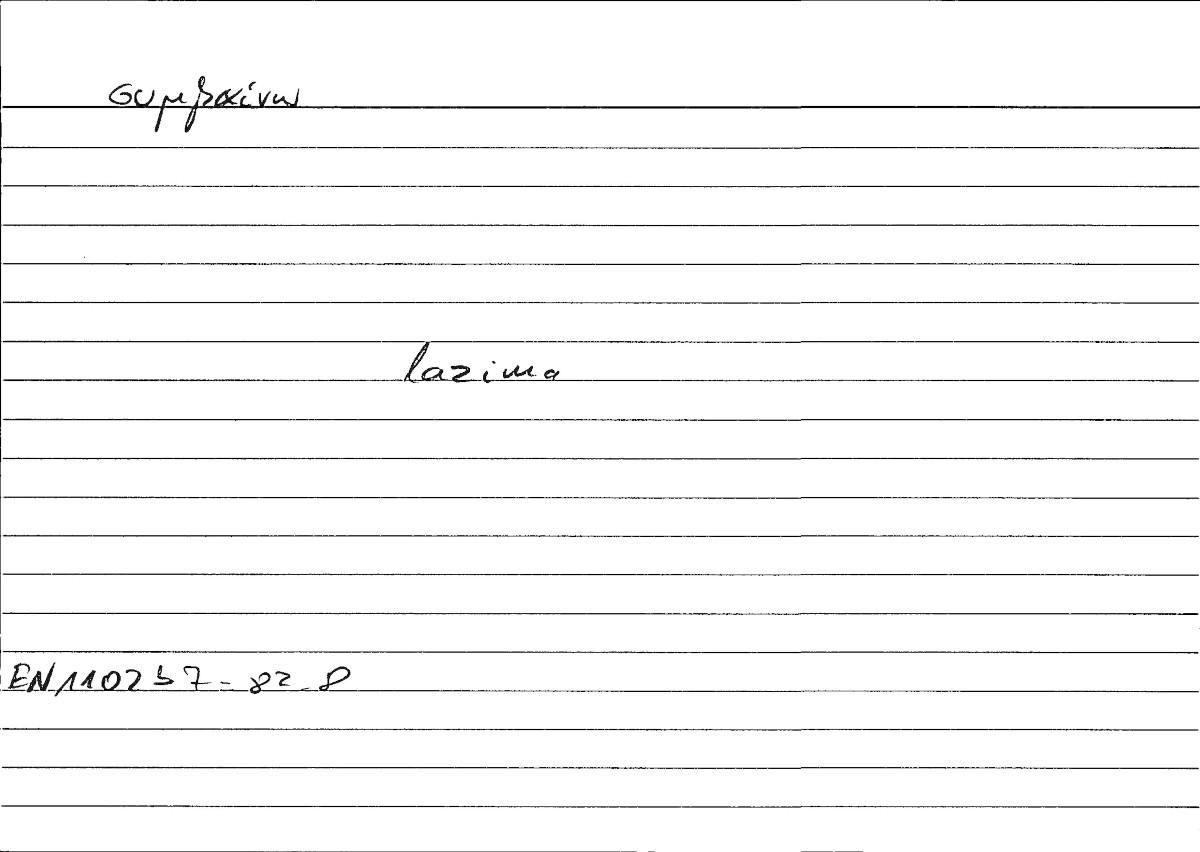 συμβαίνω
lazima
EN 1102b7 = 82 8